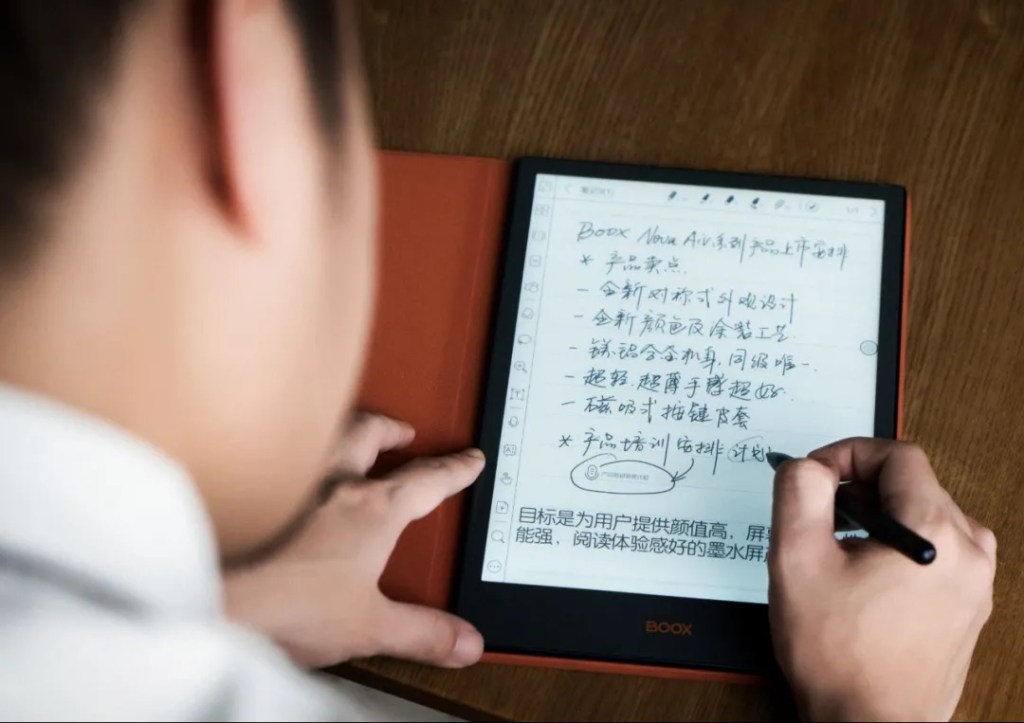 Boox Nova Air系列产品上市安排
* 产品卖点.
- 全新对称式外观设计
- 全新颜色及涂装工艺.
- 镁铝合金机身,同级唯一.
- 超轻.超薄手感超好.
- 磁吸式按键皮套
* 产品培训安排 计划
目标是为用户提供颜值高，屏
能强，阅读体验感好的墨水屏
BOOX